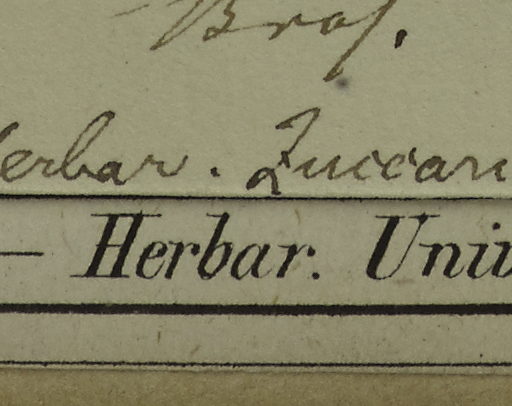 Bras.
Herbar. Zuccari
— Herbar. Univ